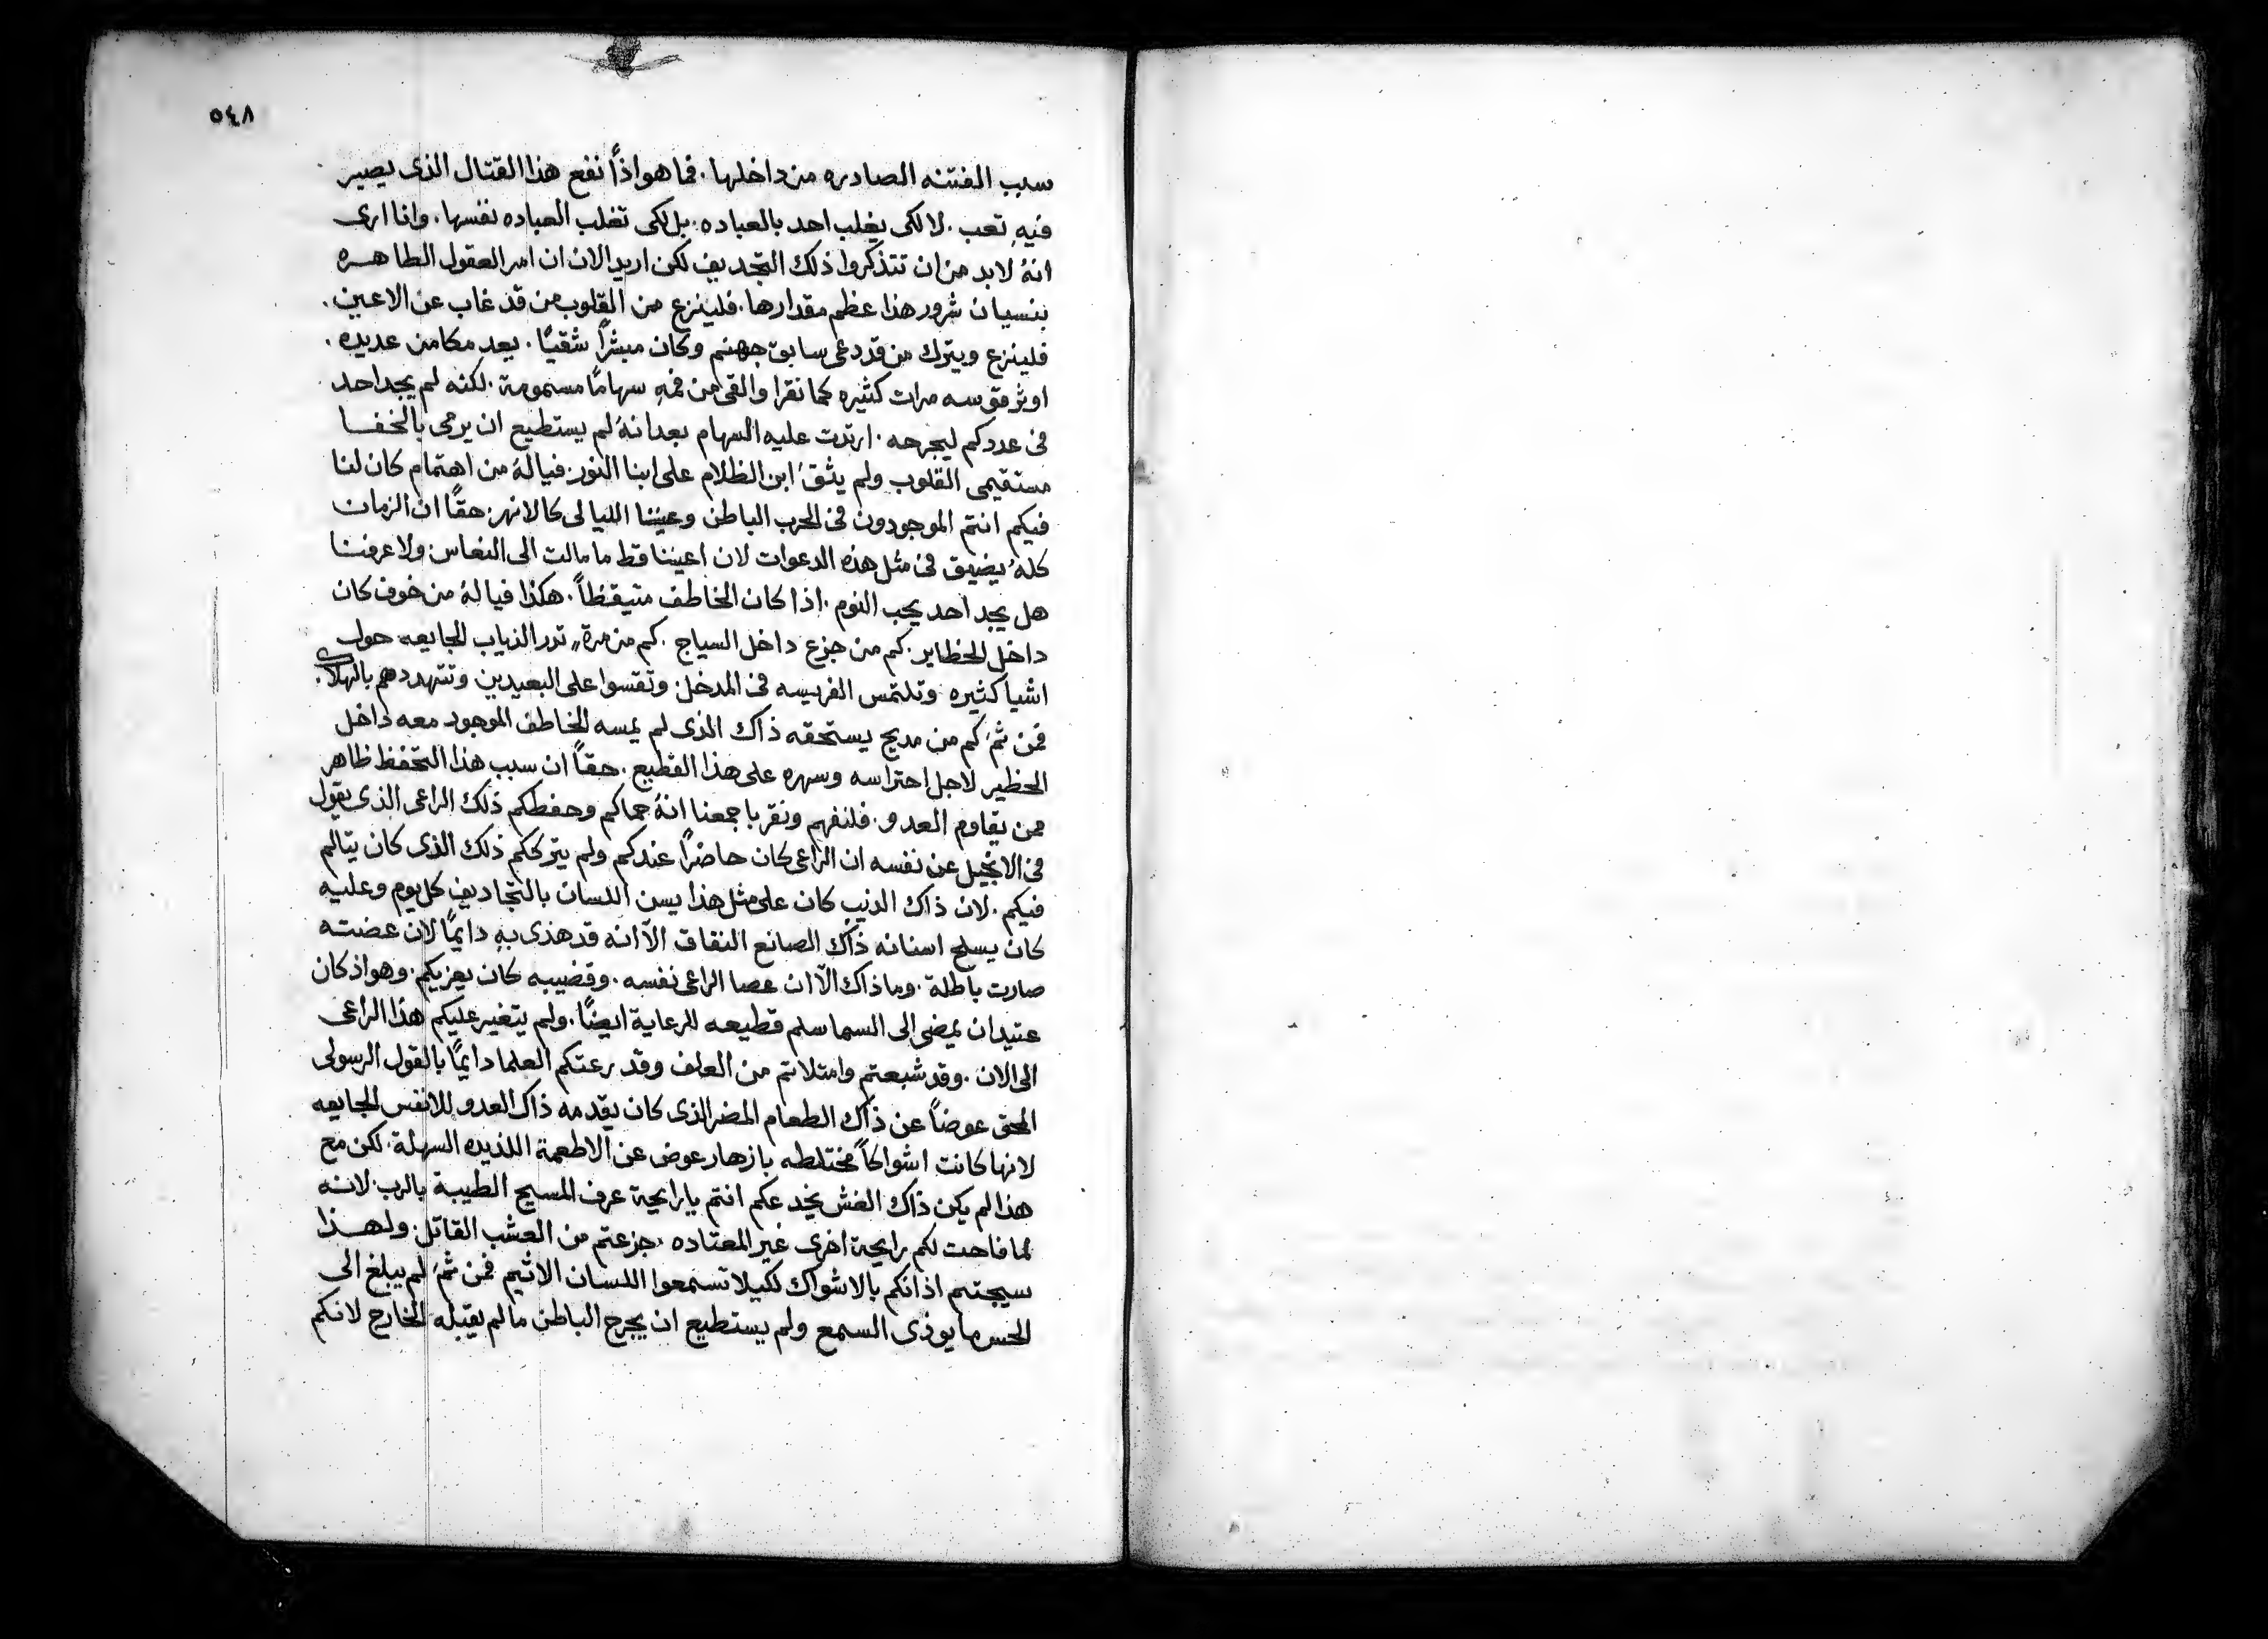 ٥٤٨
سبب الفتنه الصادره من داخلها. فما هو اذاً نفع هذا القتال الذى يصير
فيهِ تعب. لا لكى يغلب احد بالعباده. بل لكى تغلب العباده نفسها. وانا ارى
انهُ لابد من ان تتذكروا ذلك التجديف لكن اريد الان ان امر العقول الطاهره
بنسيان شرور هذا عظم مقدارها. فلينزع من القلوب من قد غاب عن الاعين.
فلينزع ويترك من قد دعى سابق جهنم وكان مبشراً شقيًا. بعد مكامن عديده.
اوثر قوسه مرات كثيره كما نقرا والقى من فمهِ سهامًا مسمومة. لكنه لم يجد احد
فى عددكم ليجرحه. ارتدت عليه السهام بعد انهُ لم يستطيع ان يرمى بالخفا
مستقيمى القلوب ولم يثقُ ابن الظلام على ابنا النور. فيالهُ من اهتمام كان لنا
فيكم انتم الموجودون فى الحرب الباطن وعيننا الليالى كالانهر. حقًا ان الزمان
كلهُ يضيق فى مثل هذه الدعوات لان اعيننا قط ما مالت الى النعاس ولا عرفنا
هل يجد احد يحب النوم. اذا كان الخاطف متيقظاً. هكذا فيالهُ من خوف كان
داخل الحظاير. كم من جزع داخل السياج. كم من مرةٍ تدر الذياب الجايعه حول
اشيا كثيره وتلتمس الفريسه فى المدخل وتقسوا على البعيدين وتتهددهم بالهلاك.
فمن ثمَ كم من مديح يستحقه ذاك الذى لم يمسه الخاطف الموجود معه داخل
الحظير لاجل احتراسه وسهره على هذا القطيع. حقاً ان سبب هذا التحفظ ظاهر
ممن يقاوم العدو. فلنفهم ونقر باجمعنا انهُ حماكم وحفظكم ذلك الراعى الذى يقول
فى الانجيل عن نفسه ان الراعى كان حاضرًا عندكم ولم يترككم ذلك الذى كان يتالم
فيكم. لان ذاك الذيب كان على مثل هذا يسن اللسان بالتجاديف كل يوم وعليه
كان يسلح اسنانه ذاك الصانع النفاق الّا انه قد هذى بهِ دايمًا لان عضته
صارت باطلة. وما ذاك الّا ان عصا الراعى نفسه. وقضيبه كان يعزيكم. وهو اذ كان
عتيدان يمضى الى السما سلم قطيعه للرعاية ايضًا. ولم يتغير عليكم هذا الراعى
الى الان. وقد شبعتم وامتلاتم من العلف وقد رعتكم العلما دايمًا بالقول الرسولى
المحق عوضاً عن ذاك الطعام المضر الذى كان يقدمه ذاك العدو للانفس الجايعه
لانها كانت اشواكاً مختلطه بازهار عوض عن الاطعمة اللذيده السهلة. لكن مع
هذا لم يكن ذاك الغش يخدعكم انتم يا رايحة عرف المسيح الطيبة بالرب. لانه
لما فاحت لكم رايحة اخرى غير المعتاده. جزعتم من العشب القاتل ولهذا
سيجتم اذانكم بالاشواك لكيلا تسمعوا اللسان الاثيم فمن ثمَ لم يبلغ الى
الحس ما يوذى السمع ولم يستطيع ان يجرح الباطن ما لم يقبله الخارج لانكم